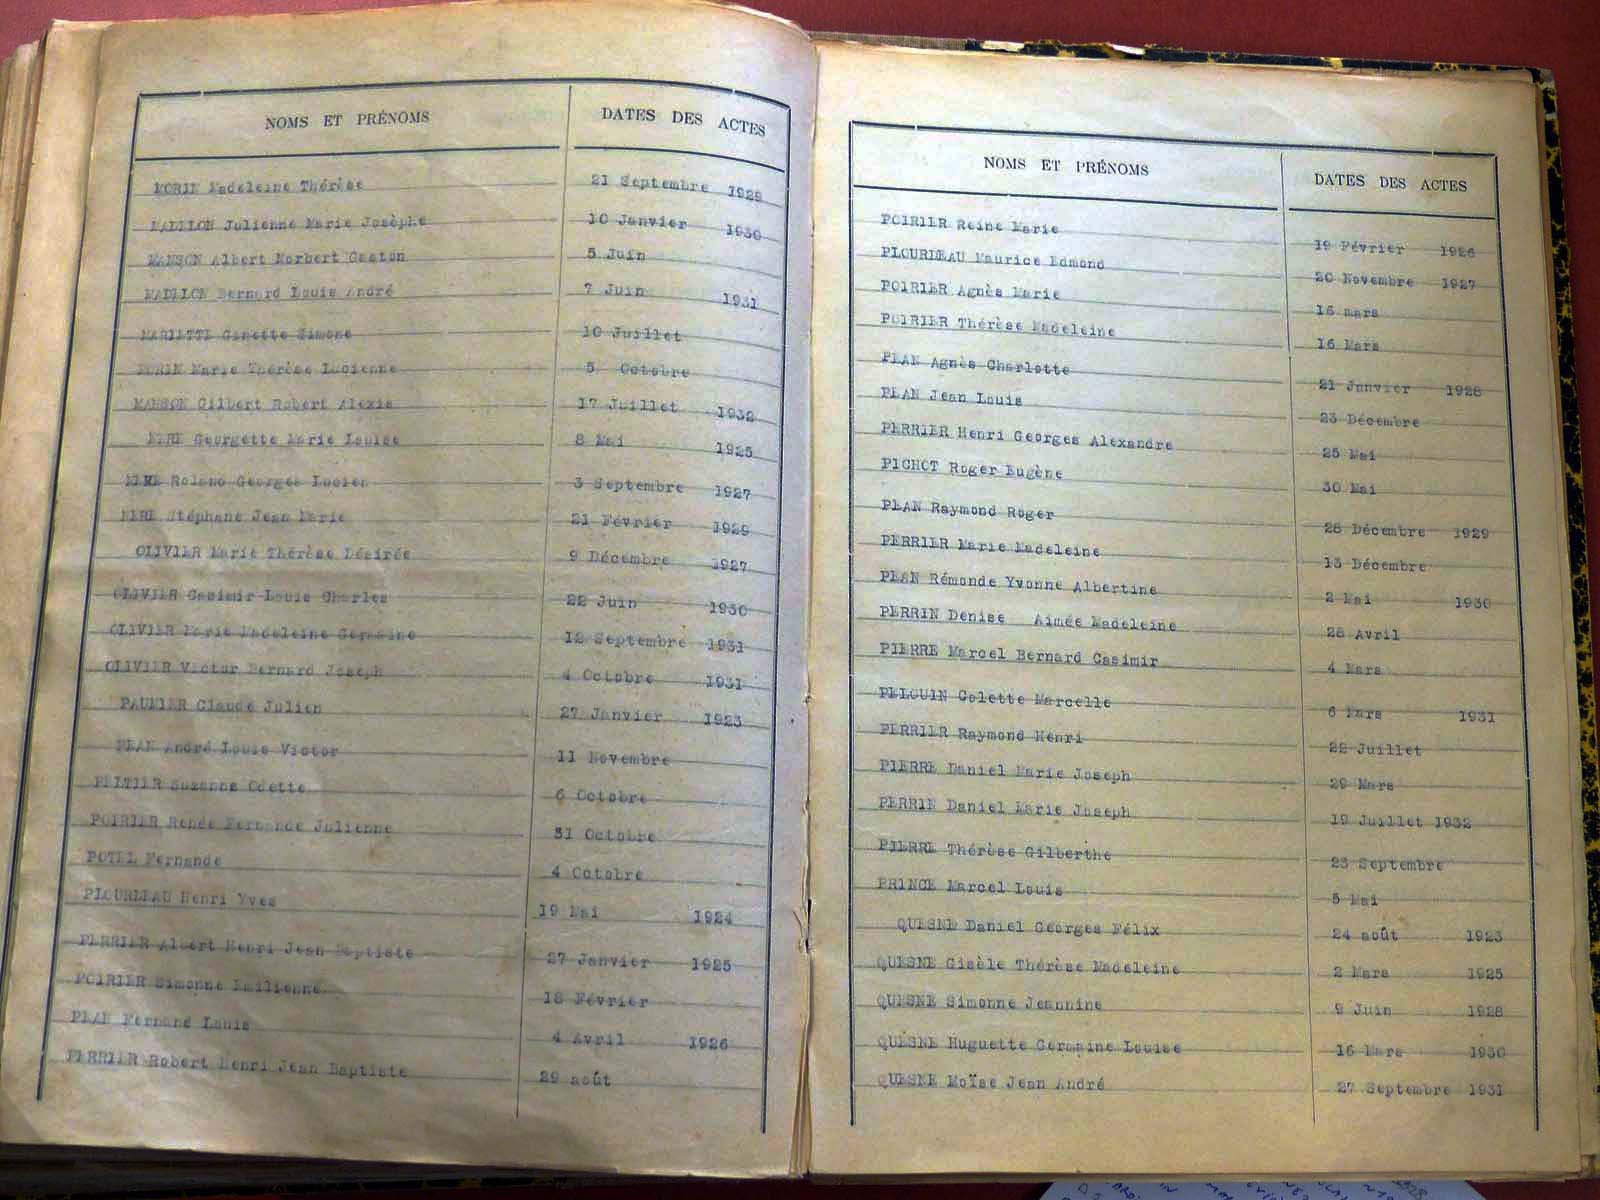 NOMS ET PRÉNOMS DATES DES ACTES
MORIN Madeleine Thérèse 21 Septembre 1929
MADELON Julienne Marie Josèphe 10 Janvier 1930
MANSON Albert Norbert Gaston 5 Juin
MADELON Bernard Louis André 7 Juin 1931
MARIETTE Ginette Simone 10 Juillet
MORIN Marie Thérèse Lucienne 5 Octobre
MANSON Gilbert Robert Alexis 17 Juillet 1932
NERE Georgette Marie Louise 8 Mai 1925
NERE Roland Georges Lucien 3 Septembre 1927
NERE Stéphane Jean Marie 21 Février 1929
OLIVIER Marie Thérèse Désirée 9 Décembre 1927
OLIVIER Casimir Louis Charles 22 Juin 1930
OLIVIER Marie Madeleine Germaine 12 Septembre 1931
OLIVIER Victor Bernard Joseph 4 Octobre 1931
PAUMIER Claude Julien 27 Janvier 1923
PEAN André Louis Victor 11 Novembre
PELTIER Suzanne Odette 6 Octobre
POIRIER Renée Fernande Julienne 31 Octobre
POTEL Fernande 4 Octobre
PLOURDEAU Henri Yves 19 Mai 1924
PERRIER Albert Henri Jean Baptiste 27 Janvier 1925
POIRIER Simonne Emilienne 18 Février
PEAN Fernand Louis 4 Avril 1926
PERRIER Robert Henri Jean Baptiste 29 août
NOMS ET PRÉNOMS DATES DES ACTES
POIRIER Reine Marie 19 Février 1926
PLOURDEAU Maurice Edmond 20 Novembre 1927
POIRIER Agnès Marie 16 mars
POIRIER Thérèse Madeleine 16 Mars
PEAN Agnès Charlotte 21 Janvier 1928
PEAN Jean Louis 23 Décembre
PERRIER Henri Georges Alexandre 25 Mai
PICHOT Roger Eugène 30 Mai
PEAN Raymond Roger 28 Décembre 1929
PERRIER Marie Madeleine 13 Décembre
PEAN Rémonde Yvonne Albertine 2 Mai 1930
PERRIN Denise Aimée Madeleine 28 Avril
PIERRE Marcel Bernard Casimir 4 Mars
PELOUIN Colette Marcelle 6 Mars 1931
PERRIER Raymond Henri 22 Juillet
PIERRE Daniel Marie Joseph 29 Mars
PERRIN Daniel Marie Joseph 19 Juillet 1932
PIERRE Thérèse Gilberthe 23 Septembre
PRINCE Marcel Louis 5 Mai
QUESNE Daniel Georges Félix 24 août 1923
QUESNE Gisèle Thérèse Madeleine 2 Mars 1925
QUESNE Simonne Jeannine 9 Juin 1928
QUESNE Huguette Germaine Louise 16 Mars 1930
QUESNE Moïse Jean André 27 Septembre 1931